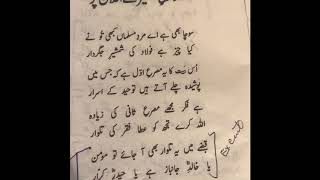 سوچا بھی ہے اے مرد مسلماں کبھی تو نے
کیا چیز ہے فولاد کی شمشیر جگردار
اس بیت کا یہ مصرع اول ہے کہ جس میں
پوشیدہ چلے آتے ہیں توحید کے اسرار
ہے فکر مجھے مصرع ثانی کی زیادہ
اللہ کرے تجھ کو عطا فقر کی تلوار
قبضے میں یہ تلوار بھی آ جائے تو مومن
یا خالدؓ جانباز ہے یا حیدرؓ کرار